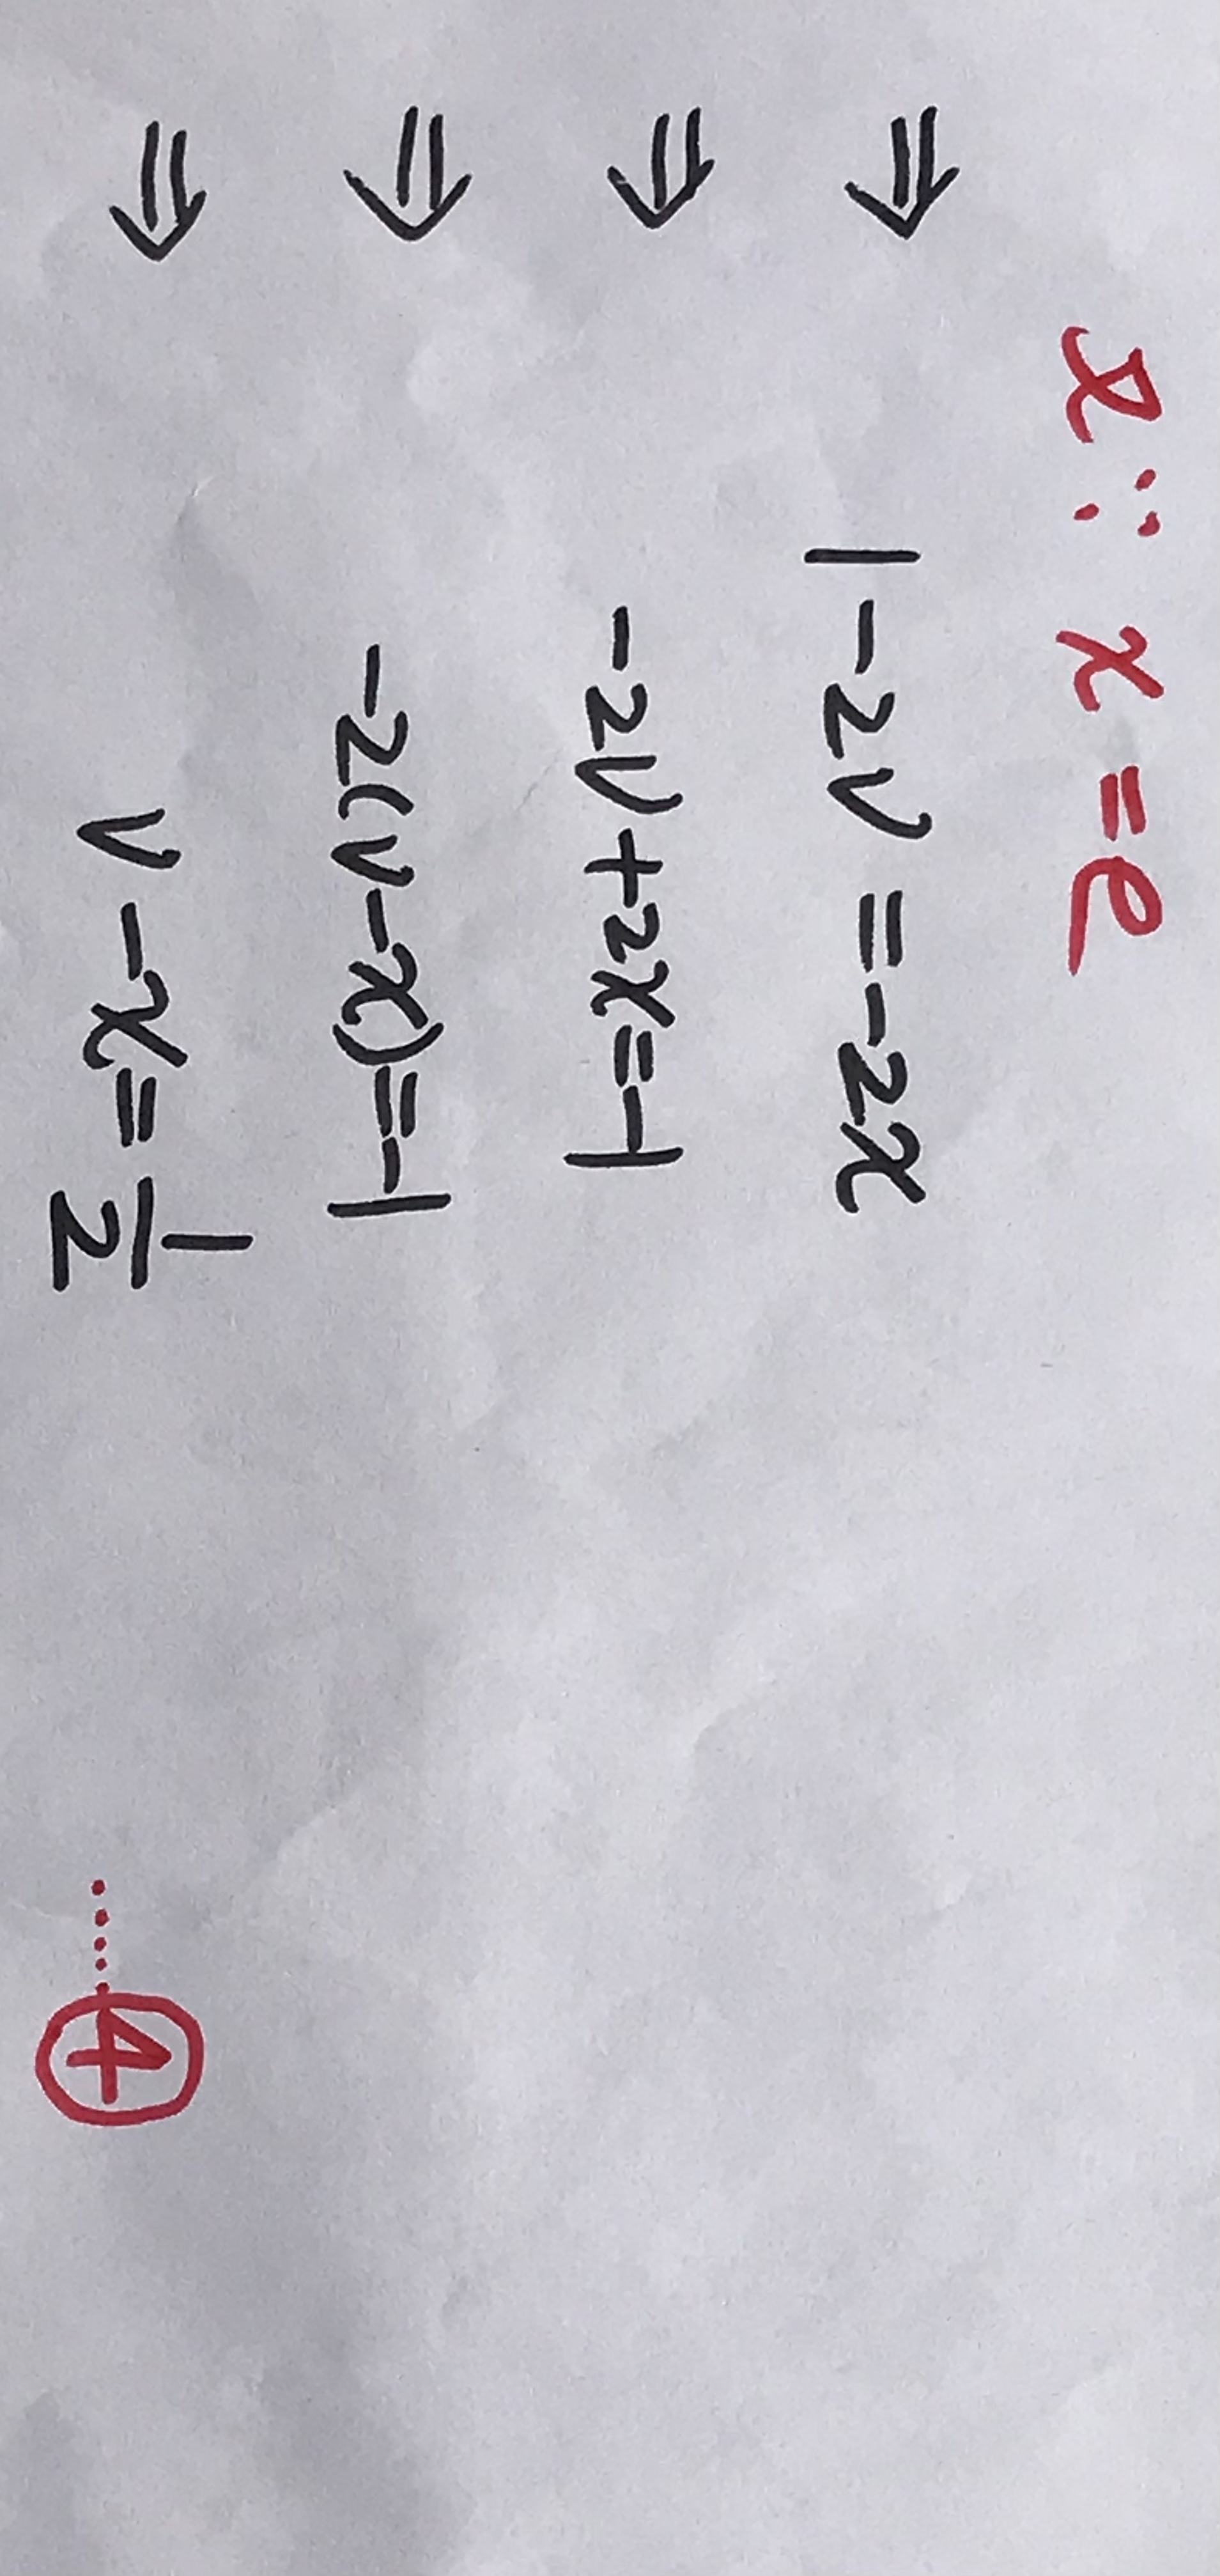 又∵ x = e
⇒ 1-2v = -2x
⇒ -2v+2x=-1
⇒ -2(v-x)=-1
⇒ v-x=1/2 .....④